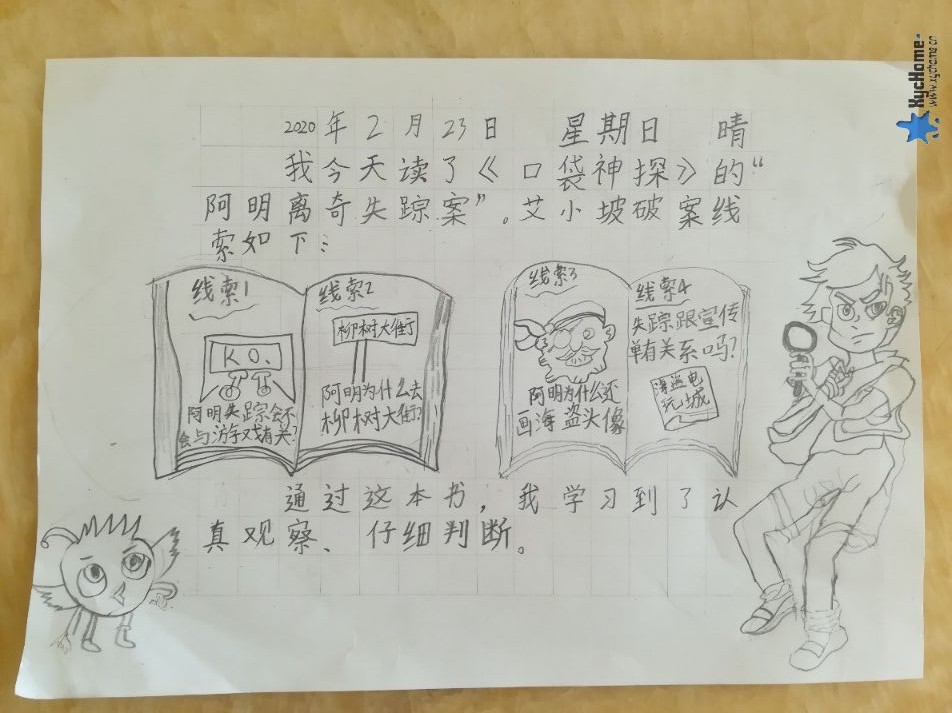 2020年2月23日 星期日 晴
我今天读了《口袋神探》的“
阿明离奇失踪案”。艾小坡破案线
索如下：
线索1
KO.
阿明失踪会不
会与游戏有关？
线索2
柳树大街
阿明为什么去
柳树大街？
线索3
阿明为什么还
画海盗头像
线索4
失踪跟宣传
单有关系吗？
海盗电
玩城
通过这本书，我学习到了认
真观察、仔细判断。
XycHome
www.xychome.cn